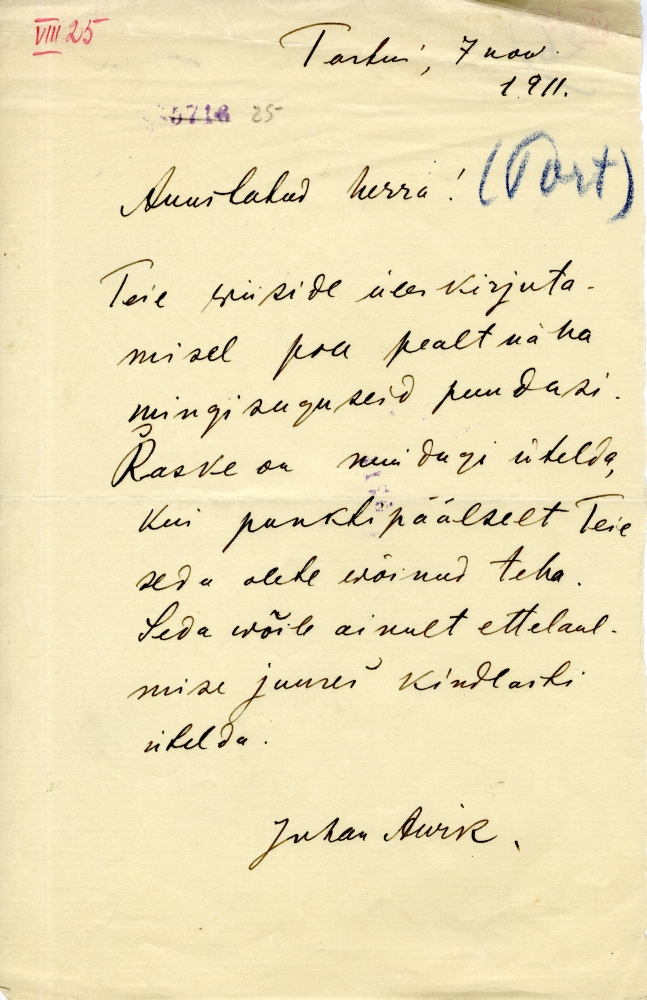 VIII 25
Tartus, 7 nov.
1911.
5716 25
Auustatud herra! (Tart)
Teie wiiside üleskirjuta-
misel pole pealtnäha
mingisuguseid puudusi.
Raske on muidugi ütelda,
kui punktipäälselt Teie
seda olete wõinud teha.
Seda wõite ainult ettelaul-
mise juures kindlasti
ütelda.
Juhan Awik.